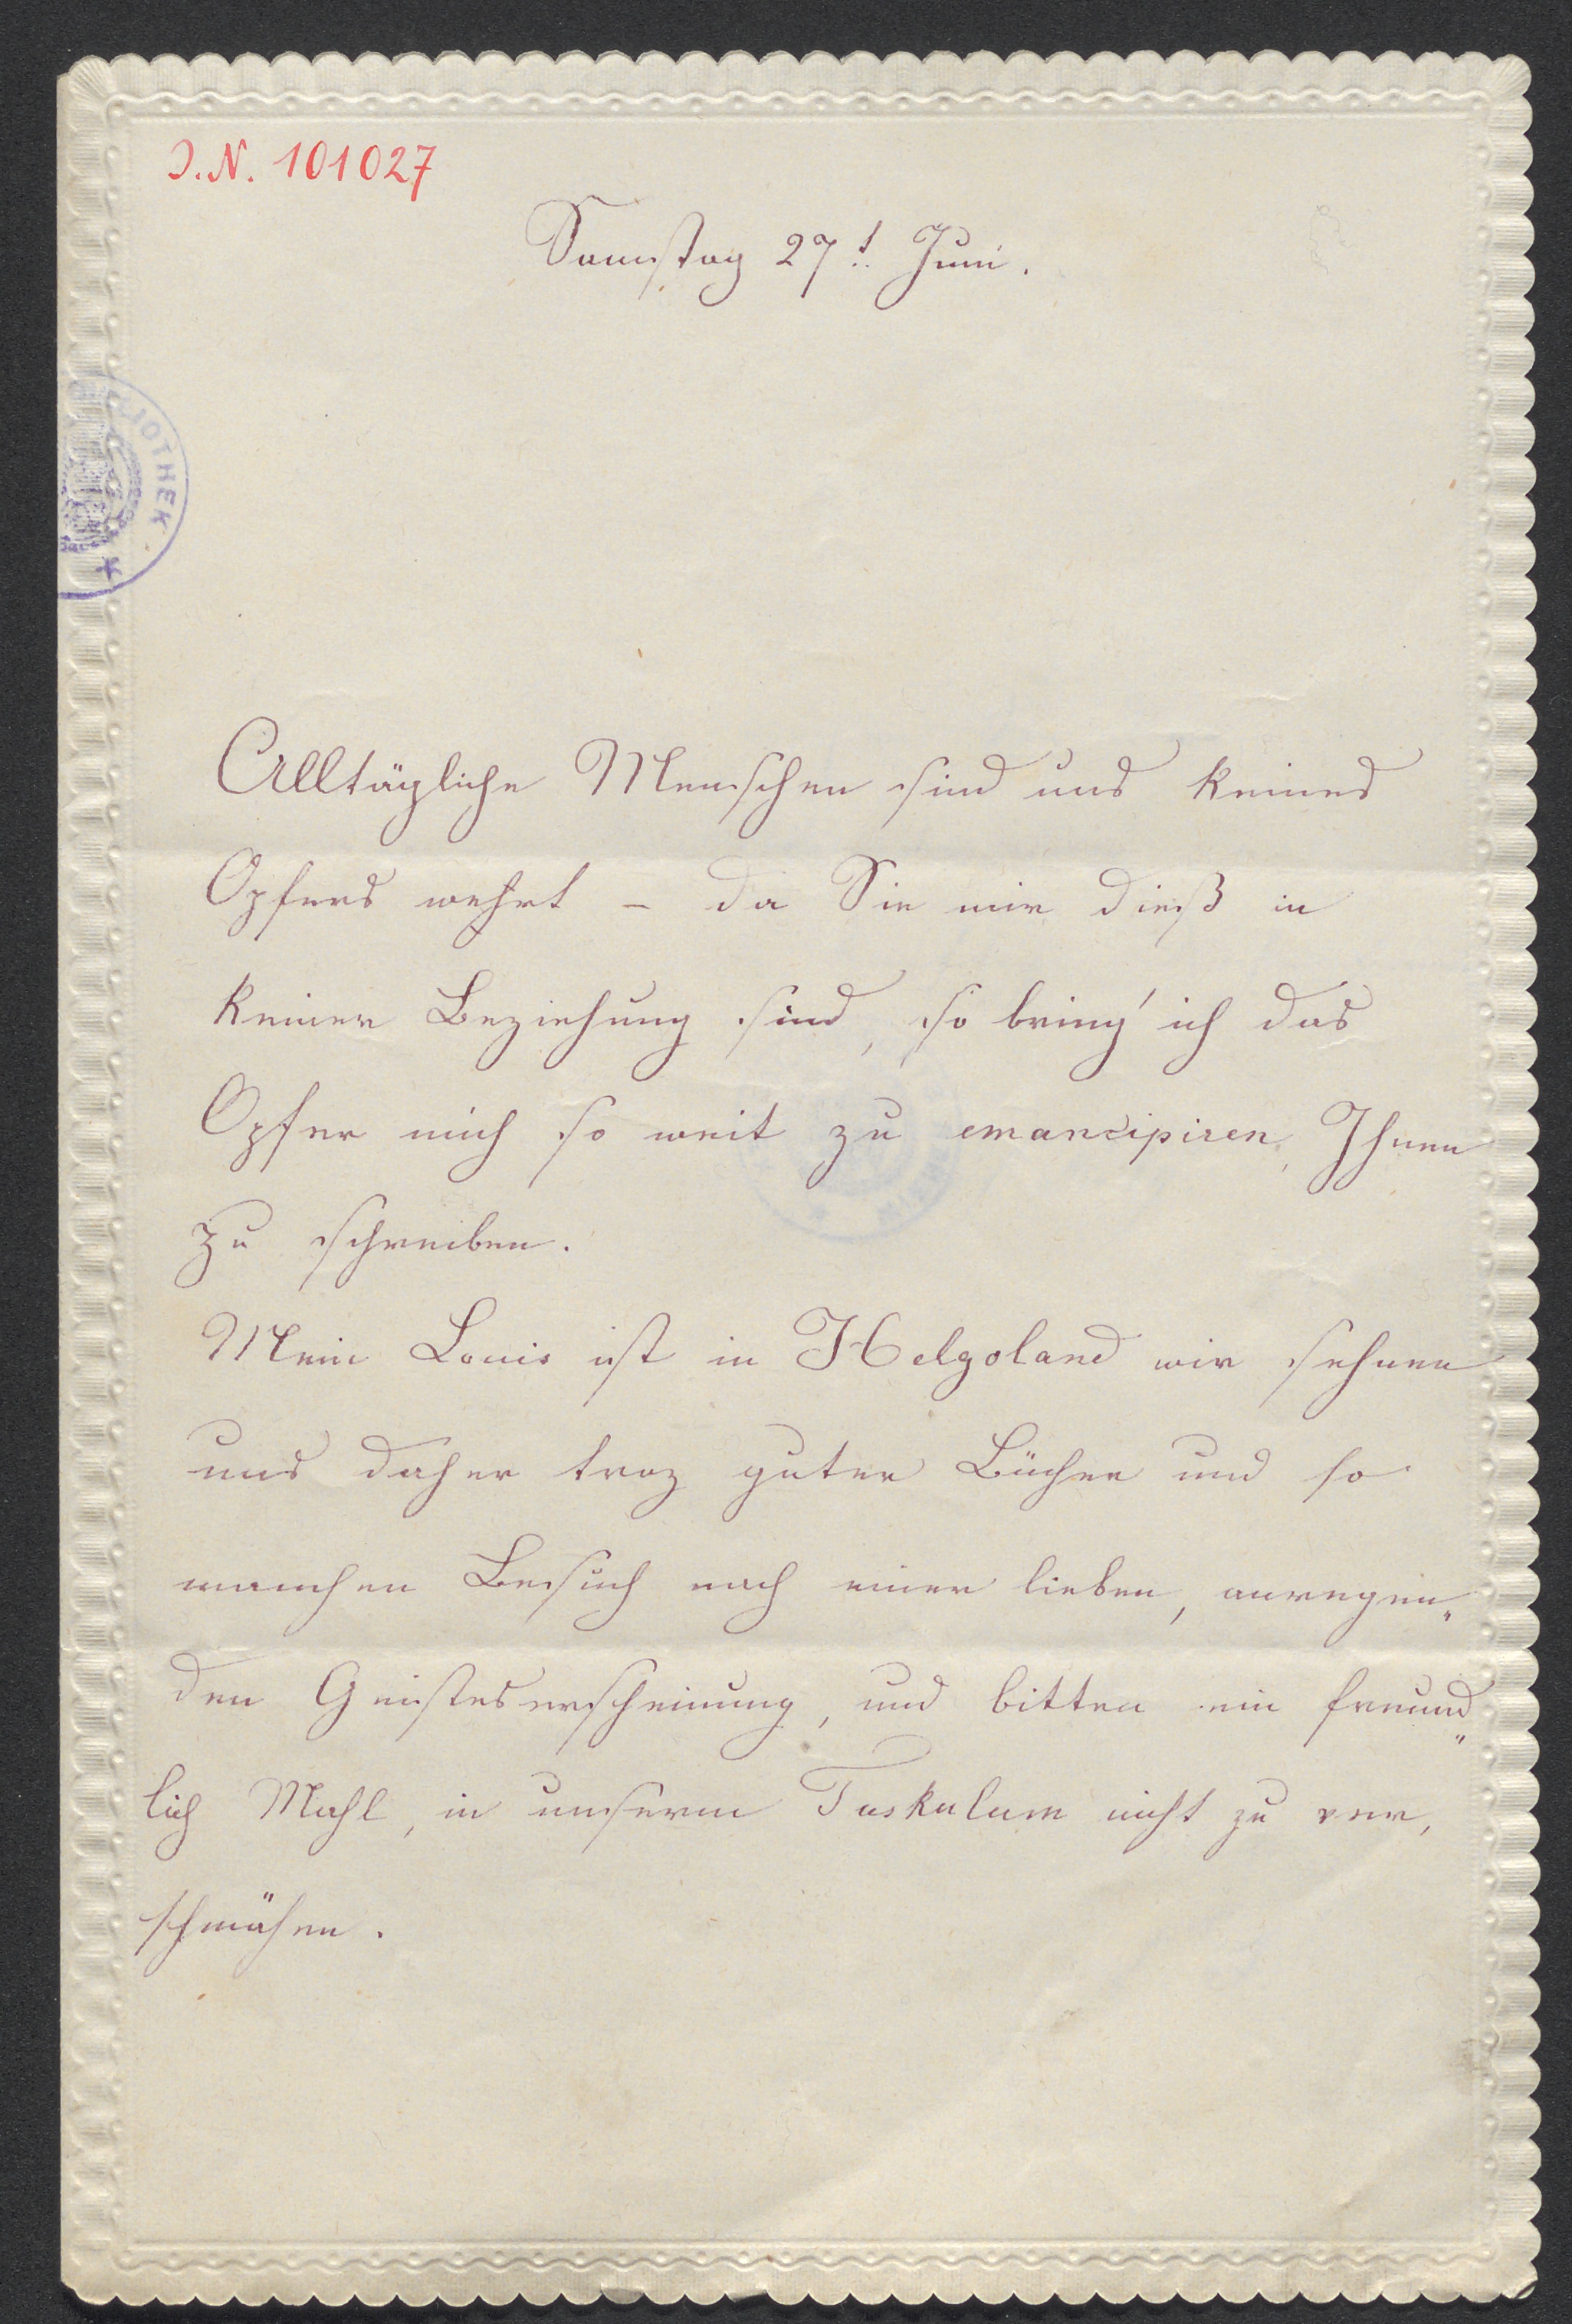 J.N. 101027
Samstag 27t. Juni.
BIBLIOTHEK
Alltägliche Menschen sind uns keines
Opfers wehrt – da Sie mir dieß in
keiner Beziehung sind, so bring' ich das
Opfer mich so weit zu emancipiren, Ihnen
zu schreiben.
Mein Louis ist in Helgoland wir sehnen
uns daher troz guter Bücher und so
manchen Besuch nach einer lieben, anregen„
den Geisteserscheinung, und bitten ein freund„
lich Mahl, in unserem Tuskulum nicht zu ver,
schmähen.